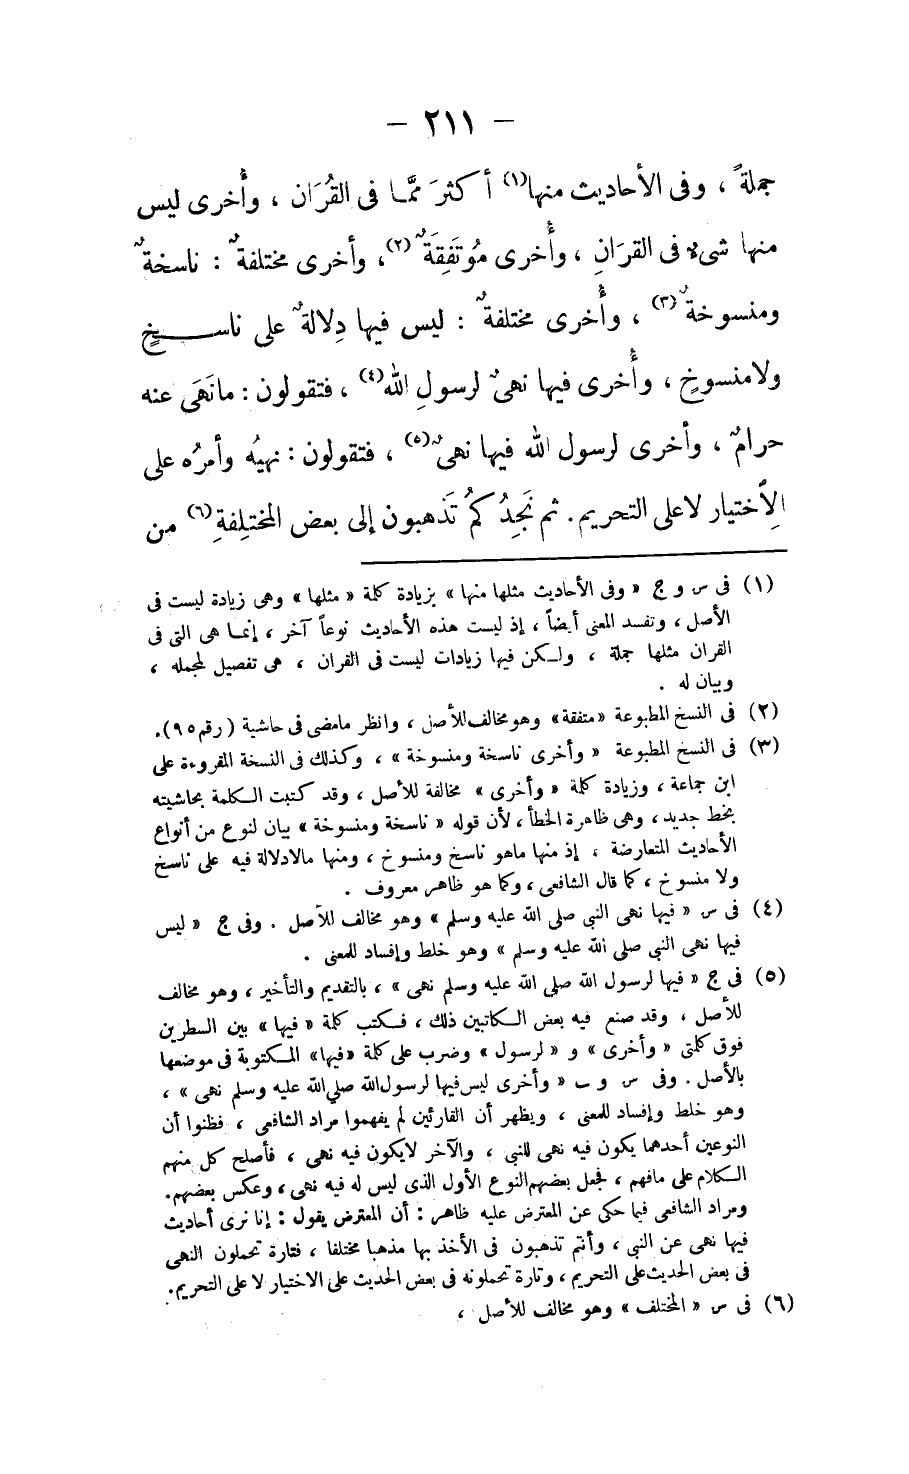 — ٢١١ —
جملةً ، وفى الأحاديث منها(١) أكثرَ ممَّا فى القُرَان ، وأُخرى ليس
منها شىء فى القرَانِ ، وأُخرى مُوتَفِقَةٌ(٢)، وأخرى مختلفةٌ : ناسخةٌ
ومنسوخةٌ(٣) ، وأُخرى مختلفةٌ : ليس فيها دِلالةٌ على ناسخٍ
ولا منسوخٍ ، وأُخرى فيها نهىٌ لرسولِ الله(٤) ، فتقولون : ما نَهَى عنه
حرامٌ ، وأخرى لرسول الله فيها نهىٌ(٥) ، فتقولون : نهيُه وأمرُه على
الِاختيار لا على التحريم . ثم نَجِدُكمُ تَذهبون إلى بعض المختلِفةِ(٦) من
(١) فى س و ج « وفى الأحاديث مثلها منها » بزيادة كلمة « مثلها » وهى زيادة ليست فى
الأصل ، وتفسد المعنى أيضاً ، إذ ليست هذه الأحاديث نوعاً آخر ، إنما هى التى فى
القران مثلها جملة ، ولكن فيها زيادات ليست فى القران ، هى تفصيل لمجمله ،
وبيان له .
(٢) فى النسخ المطبوعة « متفقة » وهو مخالف للأصل ، وانظر ما مضى فى حاشية ( رقم ٩٥ ).
(٣) فى النسخ المطبوعة « وأخرى ناسخة ومنسوخة » ، وكذلك فى النسخة المقروءة على
ابن جماعة ، وزيادة كلمة « وأخرى » مخالفة للأصل ، وقد كتبت الكلمة بحاشيته
بخط جديد ، وهى ظاهرة الخطأ ، لأن قوله « ناسخة ومنسوخة » بيان لنوع من أنواع
الأحاديث المتعارضة ، إذ منها ماهو ناسخ ومنسوخ ، ومنها مالادلالة فيه على ناسخ
ولا منسوخ ، كما قال الشافعى ، وكما هو ظاهر معروف .
(٤) فى س « فيها نهى النبى صلى الله عليه وسلم » وهو مخالف للأصل . وفى ج « ليس
فيها نهى النبى صلى الله عليه وسلم » وهو خلط وإفساد للمعنى .
(٥) فى ج « فيها لرسول الله صلى الله عليه وسلم نهى » ، بالتقديم والتأخير ، وهو مخالف
للأصل ، وقد صنع فيه بعض الكاتبين ذلك ، فكتب كلمة « فيها » بين السطرين
فوق كلمتى « وأخرى » و « لرسول » وضرب على كلمة «فيها» المكتوبة فى موضعها
بالأصل . وفى س و ب « وأخرى ليس فيها لرسول الله صلى الله عليه وسلم نهى » ،
وهو خلط وإفساد للمعنى ، ويظهر أن القارئين لم يفهموا مراد الشافعى ، فظنوا أن
النوعين أحدهما يكون فيه نهى للنبى ، والآخر لايكون فيه نهى ، فأصلح كل منهم
الكلام على مافهم ، فجعل بعضهم النوع الأول الذى ليس له فيه نهى ، وعكس بعضهم.
ومراد الشافعى فيما حكى عن المعترض عليه ظاهر : أن المعترض يقول : إنا نرى أحاديث
فيها نهى عن النبى ، وأنتم تذهبون فى الأخذ بها مذهبا مختلفا ، فتارة تحملون النهى
فى بعض الحديث على التحريم ، وتارة تحملونه فى بعض الحديث على الاختيار لا على التحريم.
(٦) فى س « المختلف » وهو مخالف للأصل ،